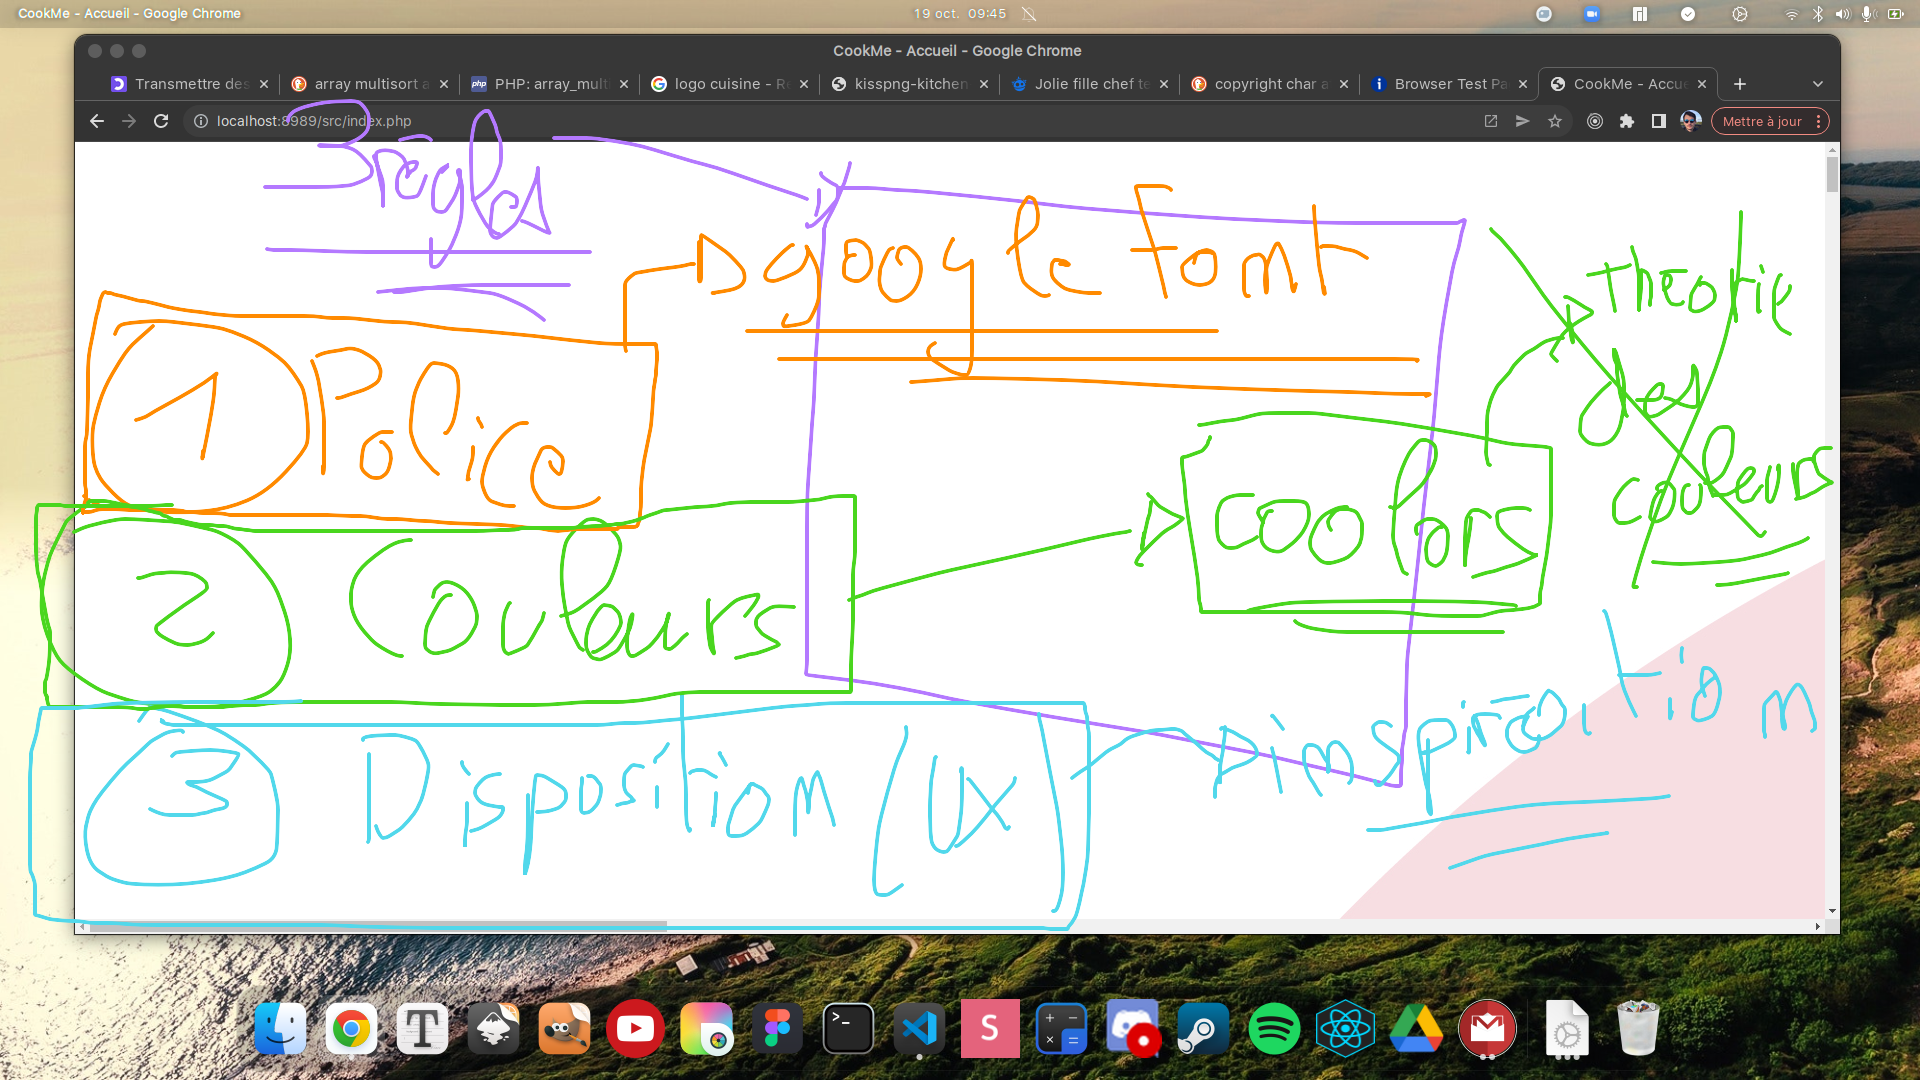 CookMe - Accueil - Google Chrome
19 oct. 09:45
CookMe - Accueil - Google Chrome
Transmettre des
array multisort a
PHP: array_mult
logo cuisine - Re
kisspng-kitchen
Jolie fille chef te
copyright char a
Browser Test Pa
CookMe - Accue
localhost:8989/src/index.php
Mettre à jour
3 règles
google font
théorie
des
couleurs
1 Police
coolors
2 Couleurs
inspiration
3 Disposition (UX)